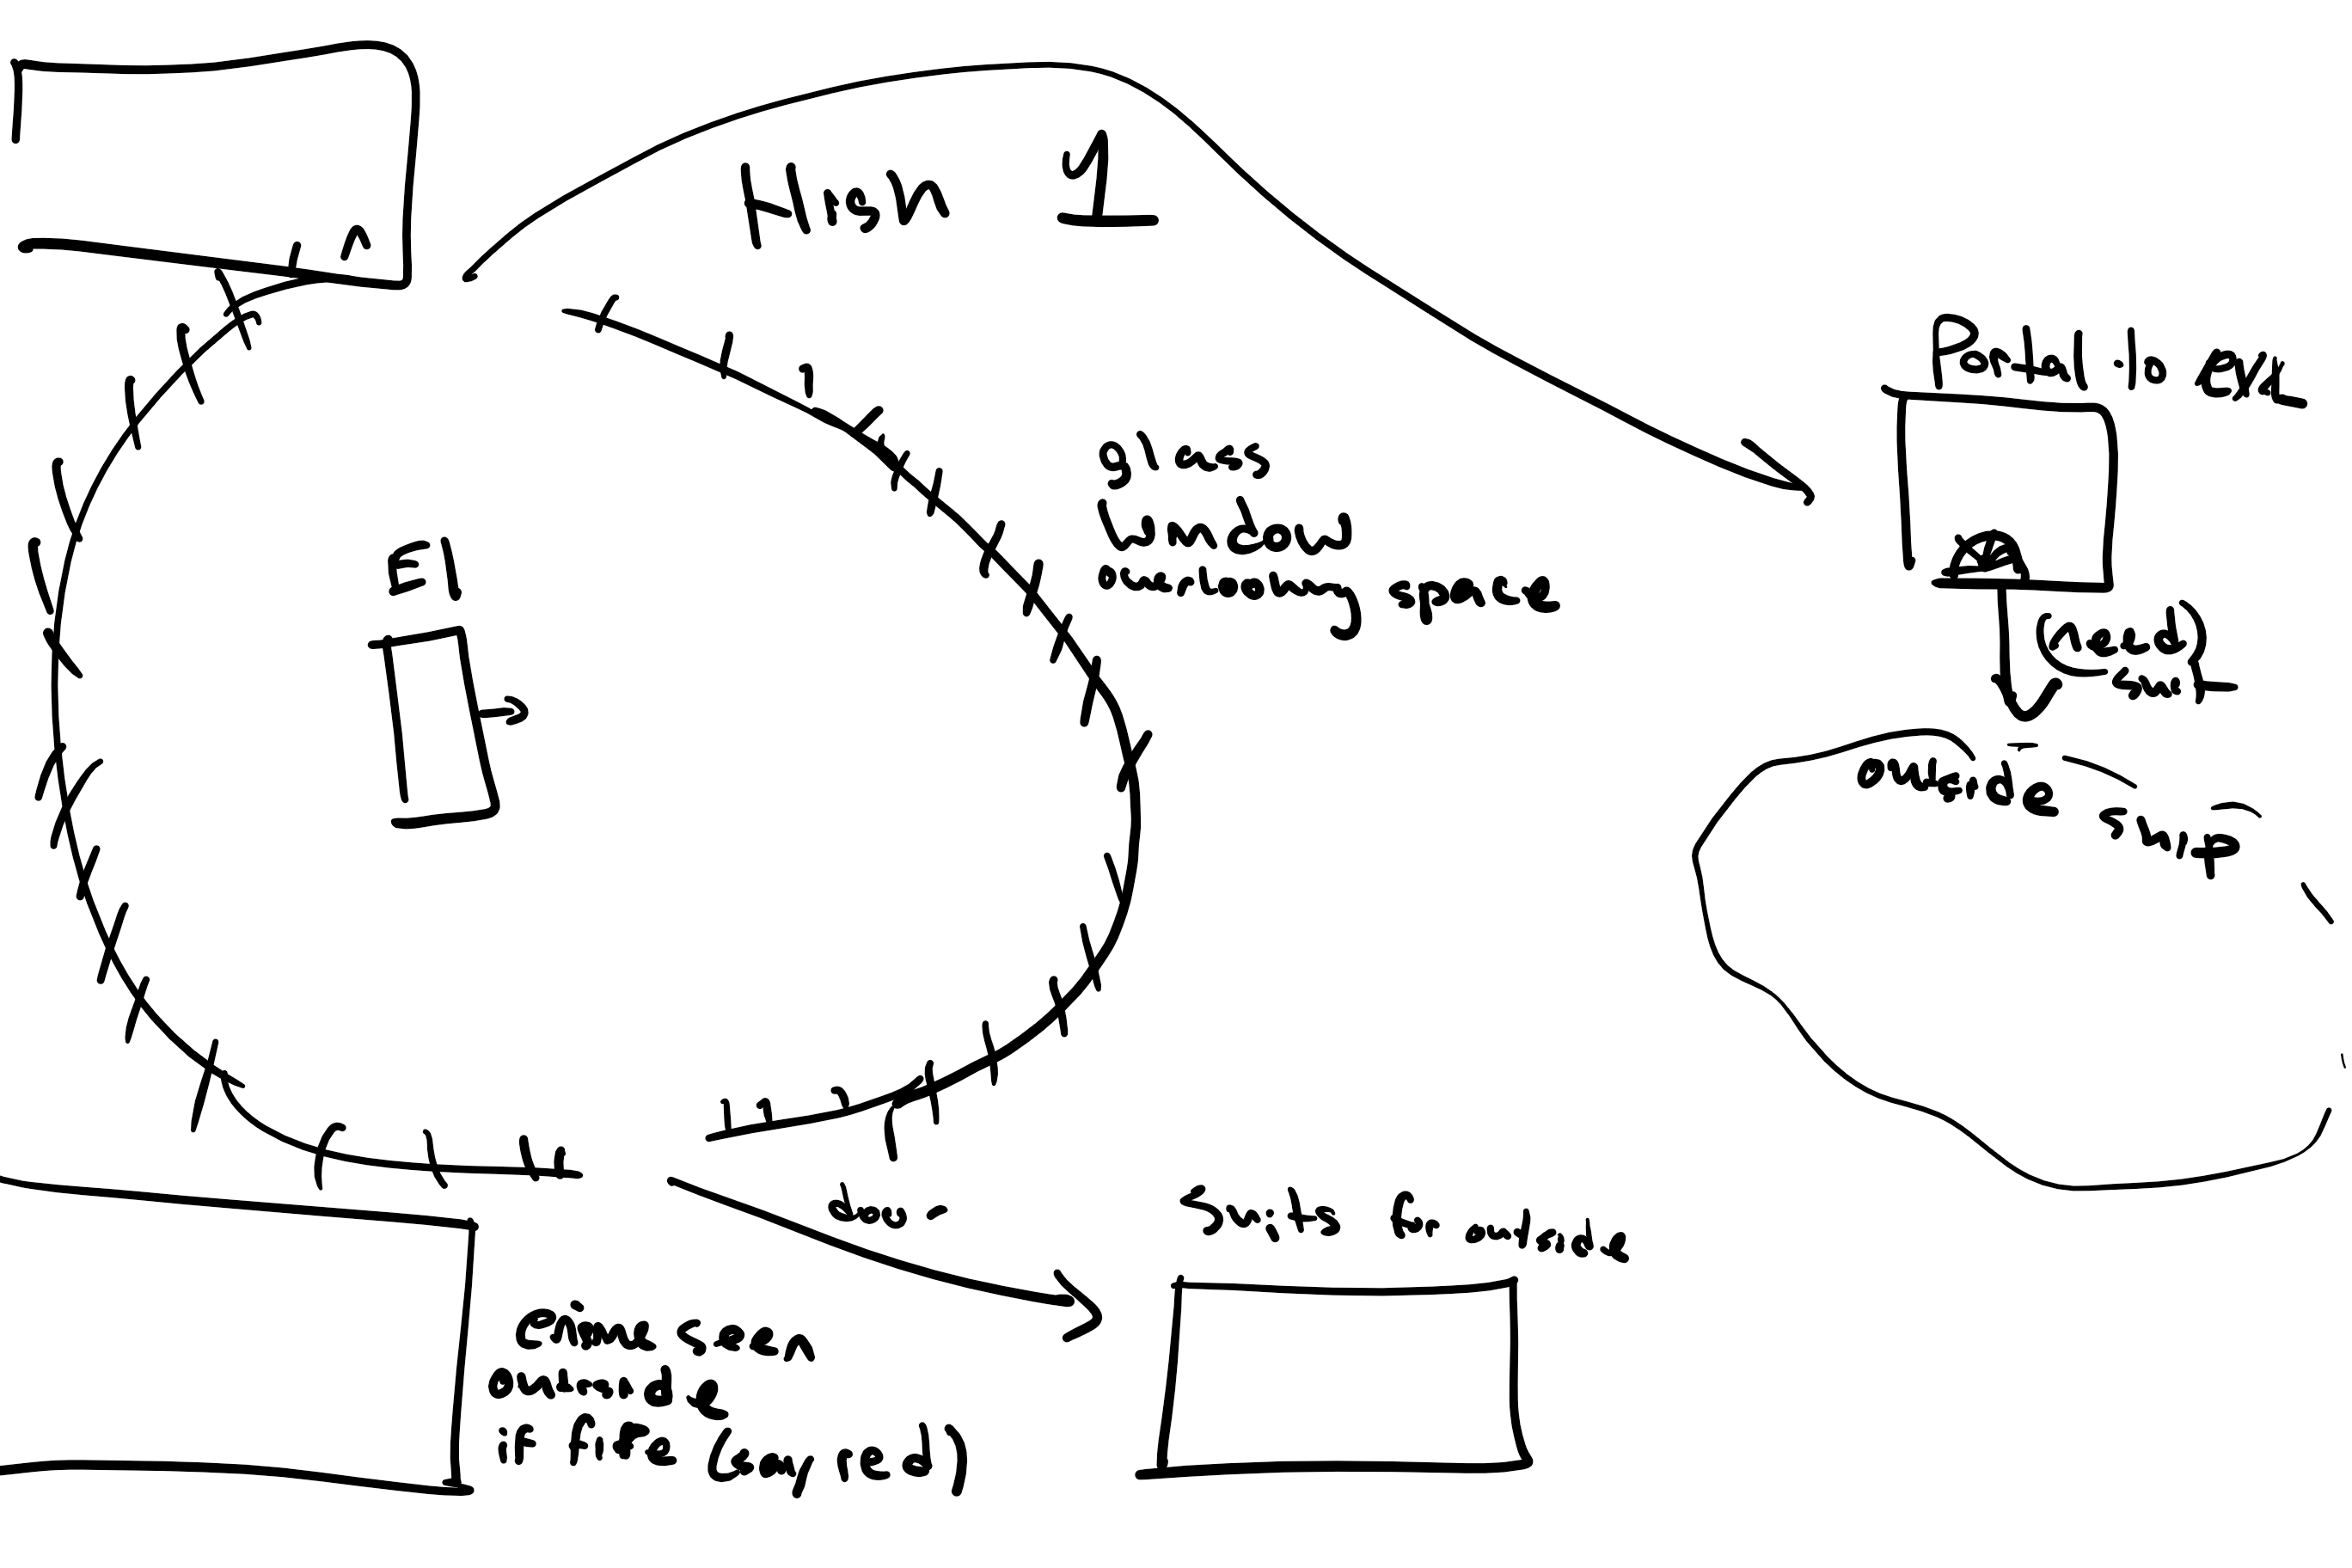 High 1
Portal to exit
glass
window
overlooking space
El
(need
suit)
outside
ship
door
Suits for outside
Engines seen
outside
if fire (say red)